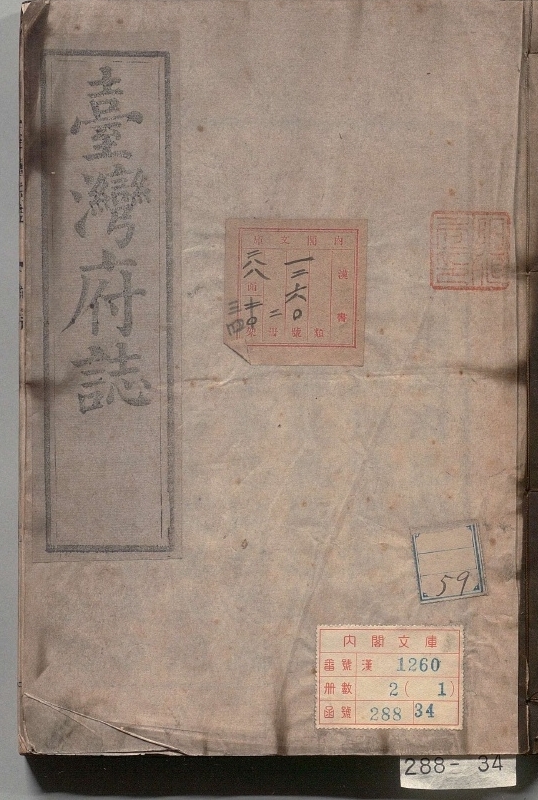 臺灣府誌
內閣文庫
漢書
一二六〇
二
二八八
三四
59
內閣文庫
番號 漢 1260
冊數 2(1)
函號 288 34
288-34